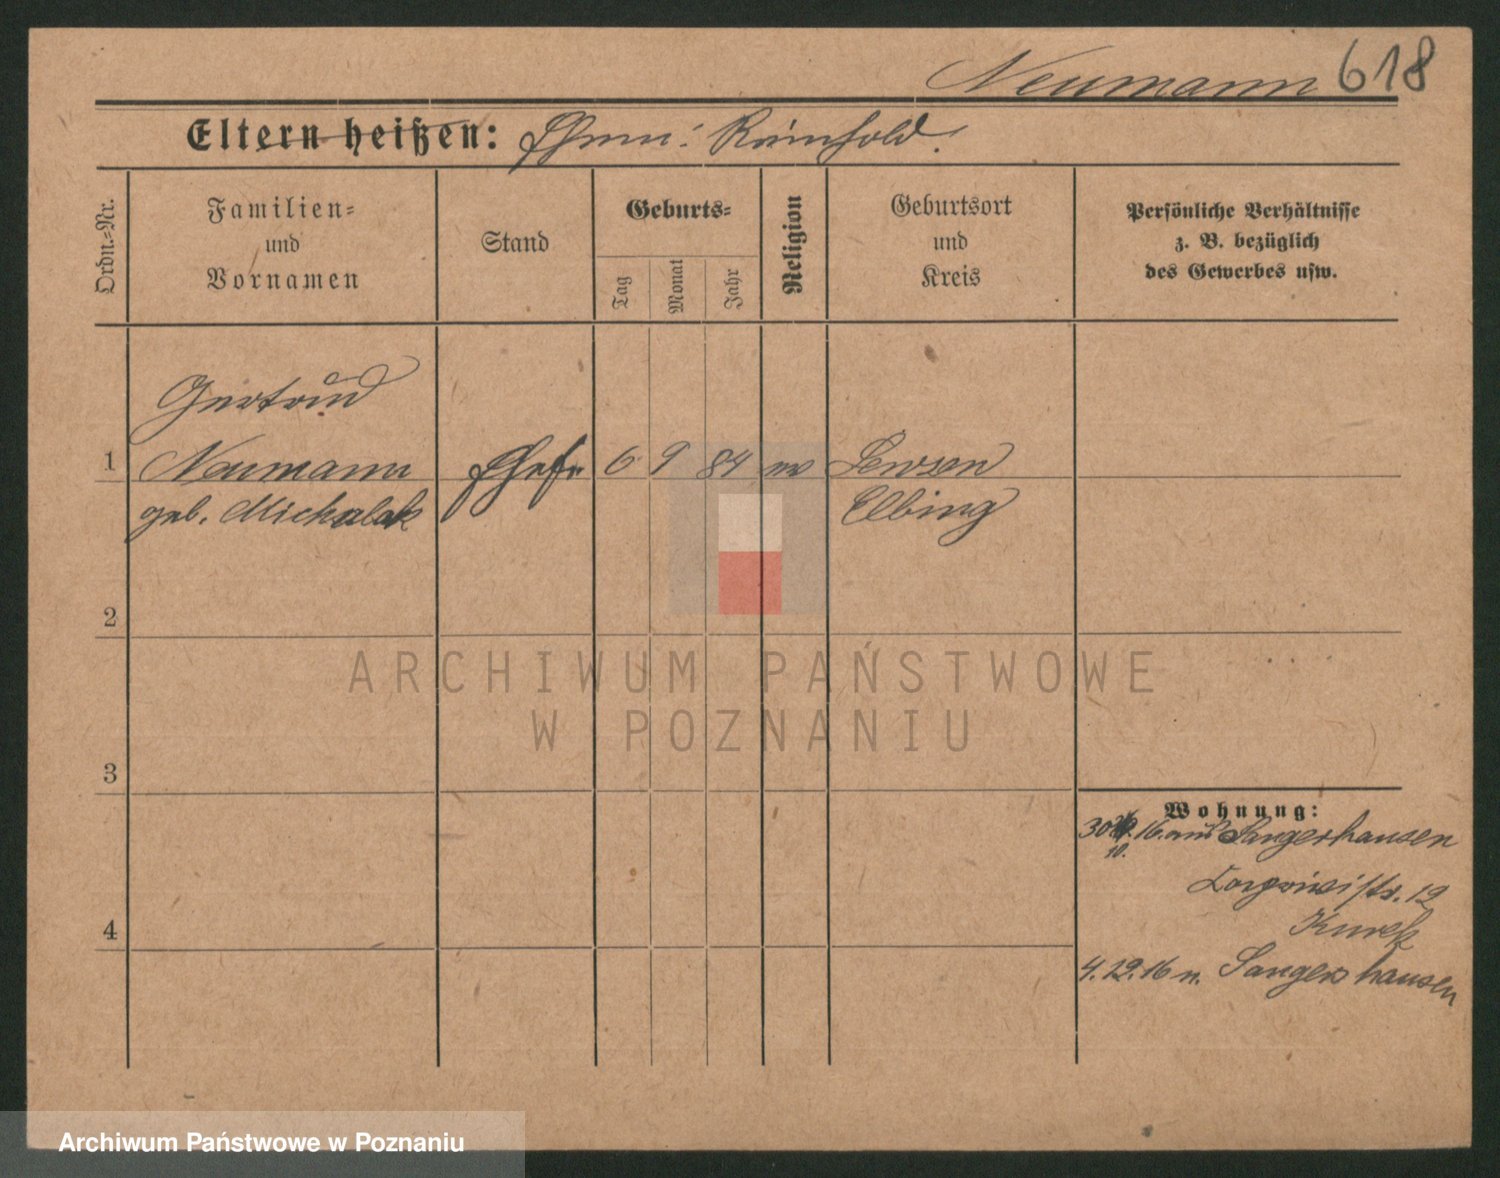 Neumann 618
Eltern heißen: Ehem: Reinhold.
Ordn.-Nr.
Familien-
und
Vornamen
Stand
Geburts-
Tag
Monat
Jahr
Religion
Geburtsort
und
Kreis
Persönliche Verhältnisse
z. B. bezüglich
des Gewerbes usw.
Gertrud
1 Neumann Ehefr 6 9 84 ev Serpen
geb. Michalak Elbing
2
3
4
Wohnung:
30. 16. aus Sangerhausen
10.
12
4.12.16 n. Sangerhausen
ARCHIWUM PAŃSTWOWE
W POZNANIU
Archiwum Państwowe w Poznaniu